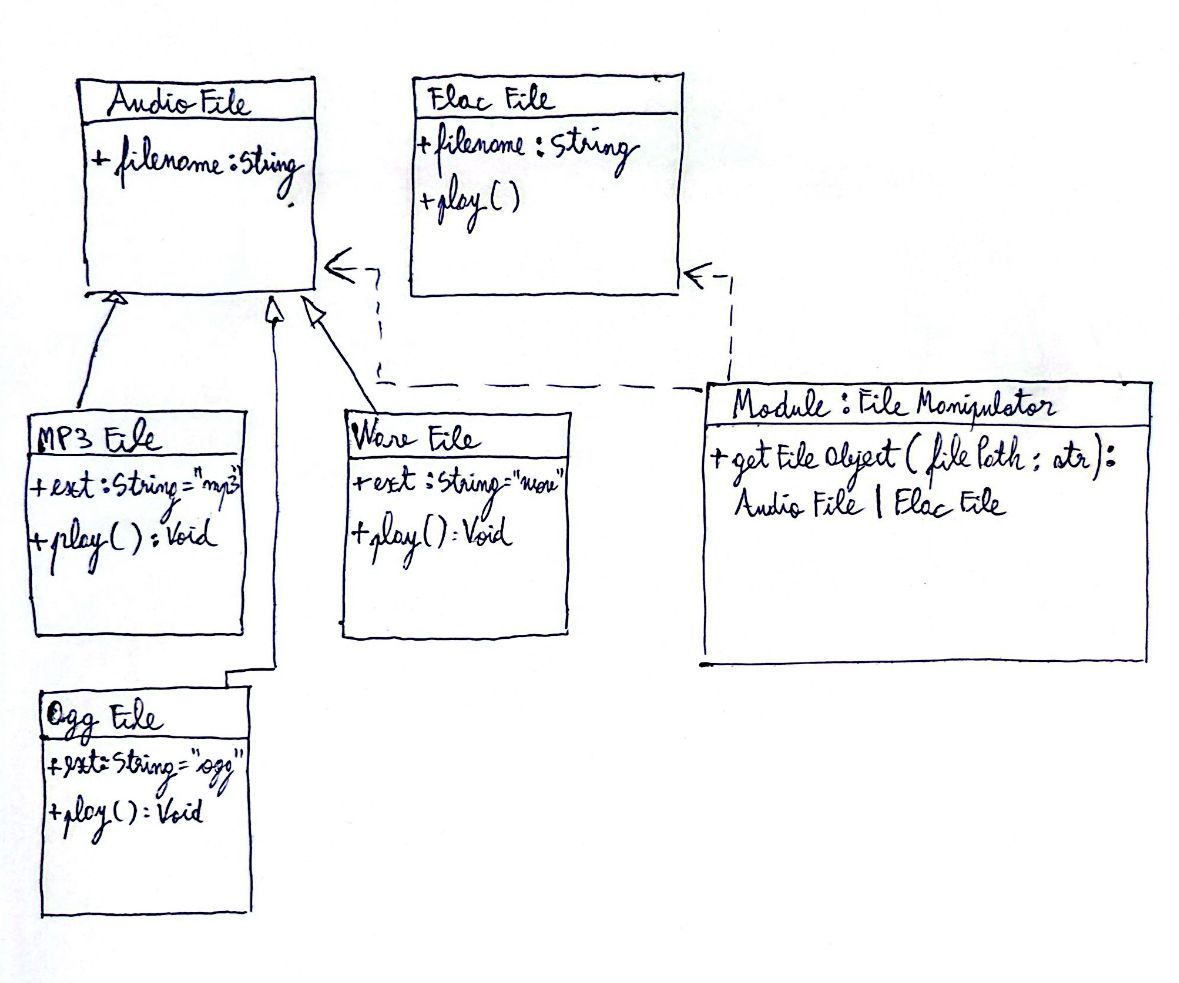 Audio File
+ filename : String
Flac File
+ filename : String
+ play ( )
MP3 File
+ ext : String = "mp3"
+ play ( ) : Void
Wave File
+ ext : String = "wave"
+ play ( ) : Void
Module : File Manipulator
+ get File Object ( file Path : str ) :
Audio File | Flac File
Ogg File
+ ext : String = "ogg"
+ play ( ) : Void